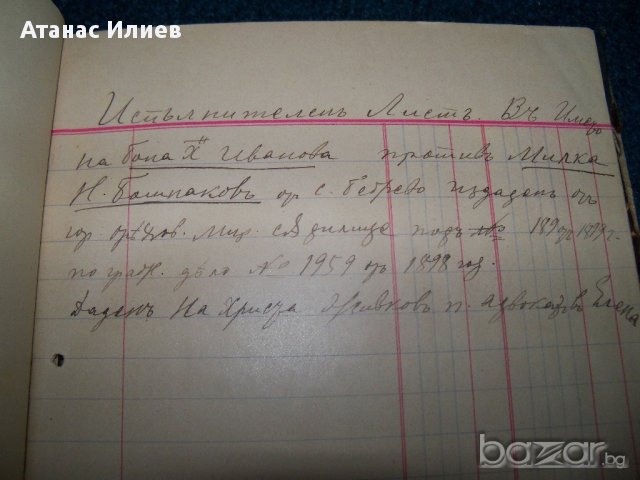 Атанас Илиев
Испълнителенъ Листъ. Въ Имѣто
на Гопа Х. Иванова противъ Милка
Н. Башпаковъ от с. Бебрево издаденъ отъ
гор. орѣхов. Мир. съдилище подъ № 189
по граж. дѣло № 1959 отъ 1898 год.
Даденъ На Христа Живковъ п. адвокатъ Елена
bazar.bg